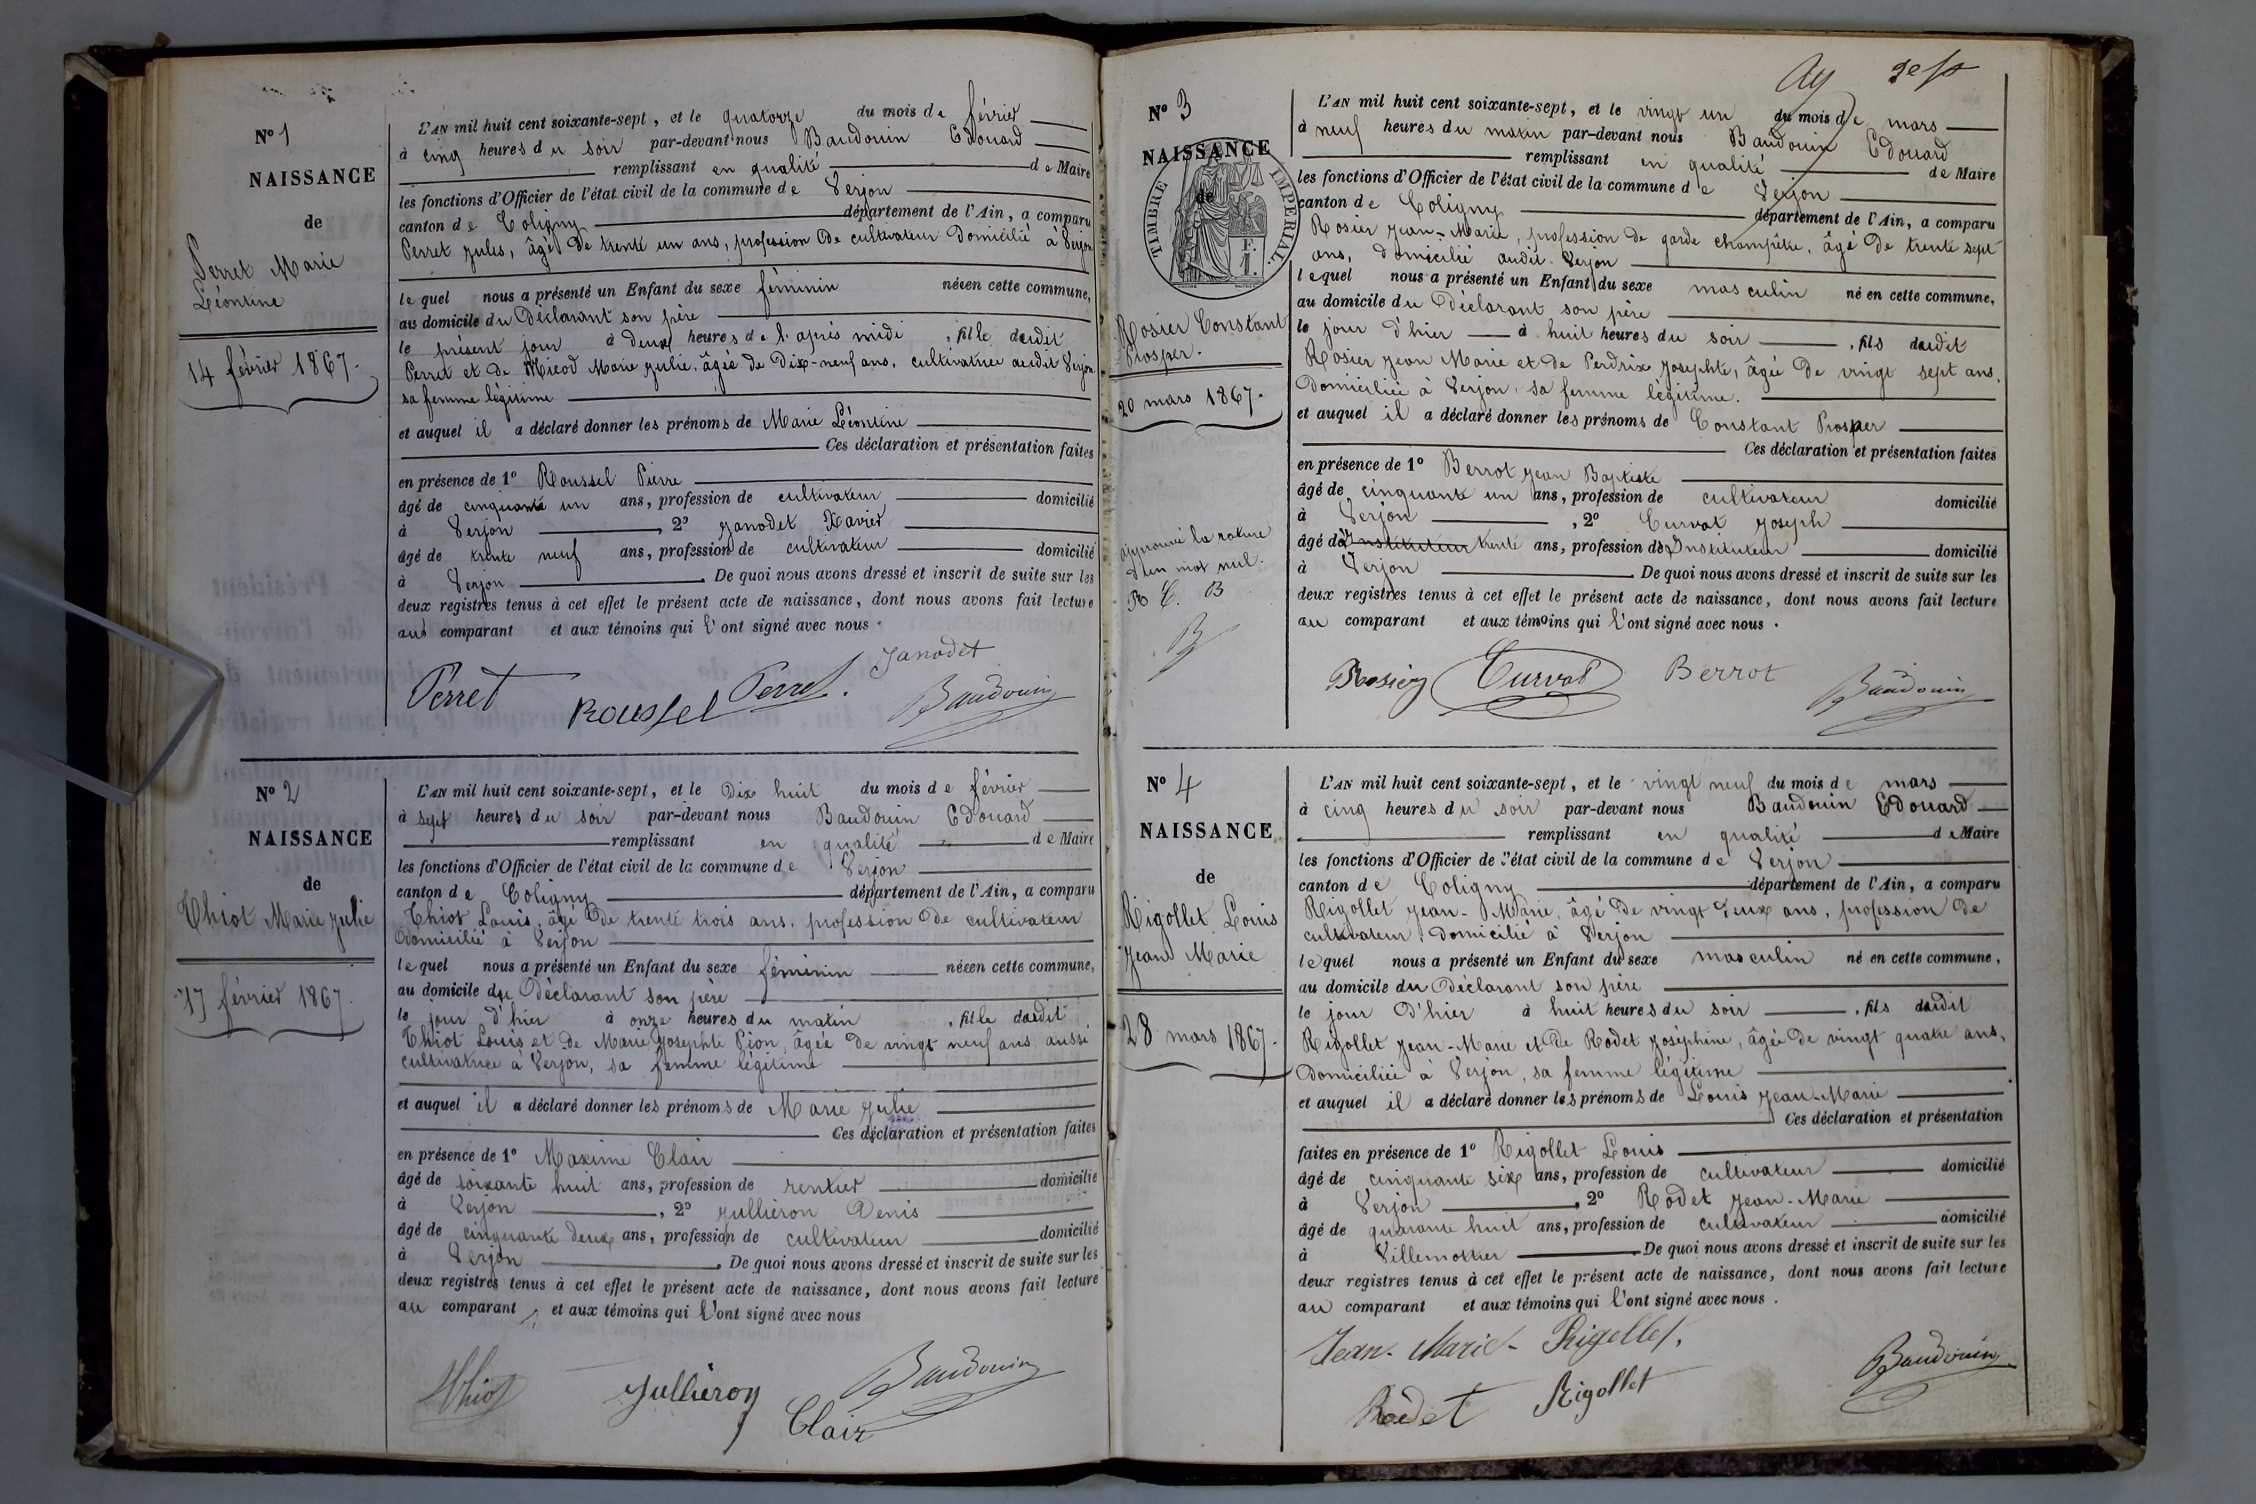 N° 1
NAISSANCE
de
Perret Marie
Léontine
14 février 1867.
L'AN mil huit cent soixante-sept, et le quatorze du mois de février
à cinq heures du soir par-devant nous Baudouin Edouard
remplissant en qualité de Maire
les fonctions d'Officier de l'état civil de la commune de Verjon
canton de Coligny département de l'Ain, a comparu
Perret Jules, âgé de trente un ans, profession de cultivateur domicilié à Verjon
lequel nous a présenté un Enfant du sexe féminin née en cette commune,
au domicile du Déclarant son père
le présent jour à deux heures de l'après midi, fille dudit
Perret et de Micod Marie Julie, âgée de Dix-neuf ans, cultivatrice audit Verjon
sa femme légitime
et auquel il a déclaré donner les prénoms de Marie Léontine
Ces déclaration et présentation faites
en présence de 1° Roussel Pierre
âgé de cinquante un ans, profession de cultivateur domicilié
à Verjon, 2° Janodet Xavier
âgé de trente neuf ans, profession de cultivateur domicilié
à Verjon. De quoi nous avons dressé et inscrit de suite sur les
deux registres tenus à cet effet le présent acte de naissance, dont nous avons fait lecture
au comparant et aux témoins qui l'ont signé avec nous.
Janodet
Perret Roussel Perret. Baudouin
N° 2
NAISSANCE
de
Thiot Marie Julie
17 février 1867.
L'AN mil huit cent soixante-sept, et le Dix huit du mois de février
à sept heures du soir par-devant nous Baudouin Edouard
remplissant en qualité de Maire
les fonctions d'Officier de l'état civil de la commune de Verjon
canton de Coligny département de l'Ain, a comparu
Thiot Louis, âgé de trente trois ans, profession de cultivateur
domicilié à Verjon
lequel nous a présenté un Enfant du sexe féminin née en cette commune,
au domicile du Déclarant son père
le jour d'hier à onze heures du matin, fille dudit
Thiot Louis et de Marie Josephte Pion, âgée de vingt neuf ans aussi
cultivatrice à Verjon, sa femme légitime
et auquel il a déclaré donner les prénoms de Marie Julie
Ces déclaration et présentation faites
en présence de 1° Maxime Clair
âgé de soixante huit ans, profession de rentier domicilié
à Verjon, 2° Jullieron Denis
âgé de cinquante deux ans, profession de cultivateur domicilié
à Verjon. De quoi nous avons dressé et inscrit de suite sur les
deux registres tenus à cet effet le présent acte de naissance, dont nous avons fait lecture
au comparant, et aux témoins qui l'ont signé avec nous
Thiot Jullieron Baudouin
Clair
N° 3
NAISSANCE
de
TIMBRE IMPERIAL.
F.
1.
Rosier Constant
Prosper.
20 mars 1867.
approuvé la rature
d'un mot nul.
R C. B
B
L'AN mil huit cent soixante-sept, et le vingt un du mois de mars
à neuf heures du matin par-devant nous Baudouin Edouard
remplissant en qualité de Maire
les fonctions d'Officier de l'état civil de la commune de Verjon
canton de Coligny département de l'Ain, a comparu
Rosier Jean-Marie, profession de garde champêtre, âgé de trente sept
ans, domicilié audit Verjon
lequel nous a présenté un Enfant du sexe masculin né en cette commune,
au domicile du Déclarant son père
le jour d'hier à huit heures du soir, fils dudit
Rosier Jean Marie et de Perdrix Josephte, âgée de vingt sept ans,
domiciliée à Verjon, sa femme légitime.
et auquel il a déclaré donner les prénoms de Constant Prosper
Ces déclaration et présentation faites
en présence de 1° Berrot Jean Baptiste
âgé de cinquante un ans, profession de cultivateur domicilié
à Verjon, 2° Curvat Joseph
âgé de Instituteur trente ans, profession de Instituteur domicilié
à Verjon. De quoi nous avons dressé et inscrit de suite sur les
deux registres tenus à cet effet le présent acte de naissance, dont nous avons fait lecture
au comparant et aux témoins qui l'ont signé avec nous.
Rosier Curvat Berrot Baudouin
N° 4
NAISSANCE
de
Rigollet Louis
Jean Marie
28 mars 1867.
L'AN mil huit cent soixante-sept, et le vingt neuf du mois de mars
à cinq heures du soir par-devant nous Baudouin Edouard
remplissant en qualité de Maire
les fonctions d'Officier de l'état civil de la commune de Verjon
canton de Coligny département de l'Ain, a comparu
Rigollet Jean-Marie, âgé de vingt deux ans, profession de
cultivateur domicilié à Verjon
lequel nous a présenté un Enfant du sexe masculin né en cette commune,
au domicile du Déclarant son père
le jour d'hier à huit heures du soir, fils dudit
Rigollet Jean-Marie et de Rodet Joséphine, âgée de vingt quatre ans,
domiciliée à Verjon, sa femme légitime
et auquel il a déclaré donner les prénoms de Louis Jean-Marie
Ces déclaration et présentation
faites en présence de 1° Rigollet Louis
âgé de cinquante six ans, profession de cultivateur domicilié
à Verjon, 2° Rodet Jean-Marie
âgé de quarante huit ans, profession de cultivateur domicilié
à Villemotier. De quoi nous avons dressé et inscrit de suite sur les
deux registres tenus à cet effet le présent acte de naissance, dont nous avons fait lecture
au comparant et aux témoins qui l'ont signé avec nous.
Jean-Marie Rigollet.
Rodet Rigollet Baudouin